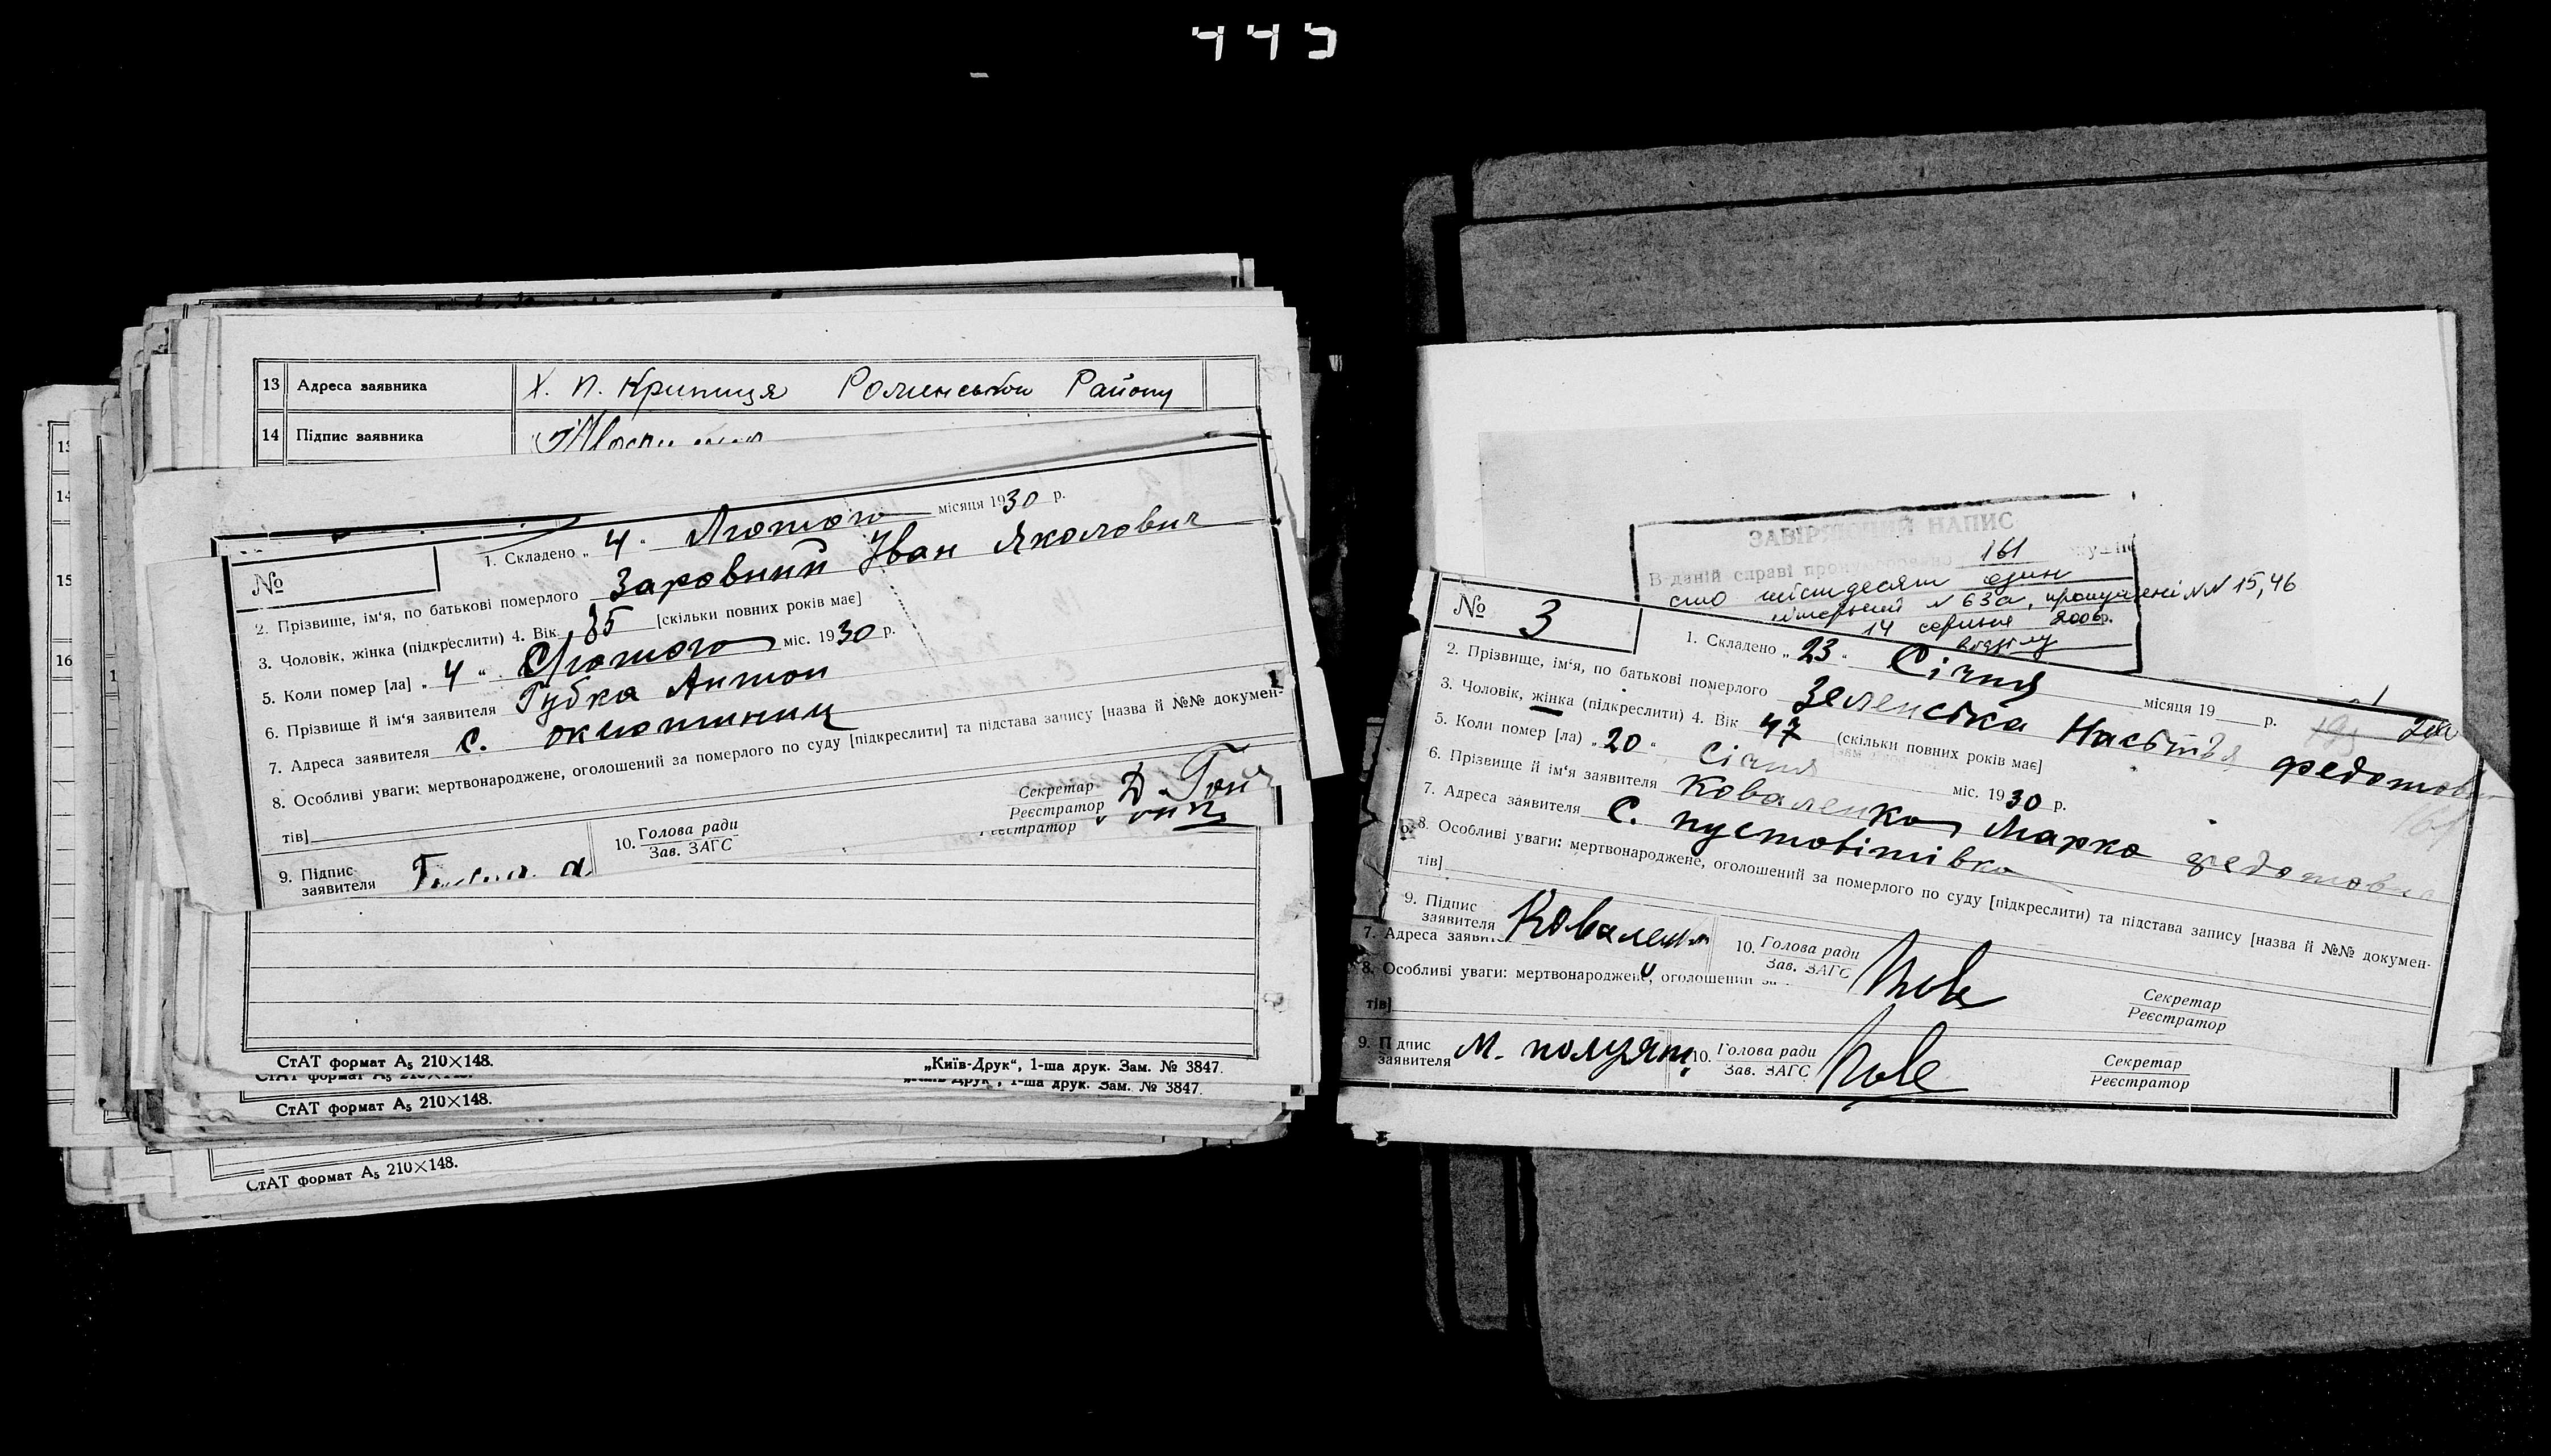 13 Адреса заявника Х. П. Криниця Роменського Району
14 Підпис заявника
1. Складено „ 4 " Лютого місяця 1930 р.
№
2. Прізвище, ім'я, по батькові померлого Заровний Іван Яколович
3. Чоловік, жінка (підкреслити) 4. Вік 85 [скільки повних років має]
5. Коли помер [ла] „ 4 " Лютого міс. 1930 р.
6. Прізвище й ім'я заявителя Губка Антон
7. Адреса заявителя с.
8. Особливі уваги: мертвонароджене, оголошений за померлого по суду [підкреслити] та підстава запису [назва й №№ докумен-
тів]
9. Підпис заявителя
10. Голова ради
Зав. ЗАГС
Секретар
Реєстратор
Реєстратор
СтАТ формат А5 210×148.
„Київ-Друк“, 1-ша друк. Зам. № 3847.
1-ша друк. Зам. № 3847.
СтАТ формат А5 210×148.
СтАТ формат А5 210×148.
15
14
15
16
ЗАВІРЯЮЧИЙ НАПИС
В даній справі пронумеровано 161
сто шістдесят один
літерний № 63а, пропущені №№ 15, 46
14 серпня 2006р.
відділу
№ 3
1. Складено „ 23 " Січня місяця 19 р.
2. Прізвище, ім'я, по батькові померлого Зеленська Настя Федотов
3. Чоловік, жінка (підкреслити) 4. Вік 47 (скільки повних років має]
5. Коли помер [ла) „ 20 " січня міс. 1930 р.
6. Прізвище й ім'я заявителя Коваленко Марко Федотович
7. Адреса заявителя с. пустовітівка
8. Особливі уваги: мертвонароджене, оголошений за померлого по суду [підкреслити) та підстава запису [назва й №№ докумен-
тів]
9. Підпис заявителя Коваленко
10. Голова ради
Зав. ЗАГС
Секретар
Реєстратор
7. Адреса
8. Особливі уваги: мертвонароджене, оголошений
тів]
9. Підпис заявителя М.
10. Голова ради
Зав. ЗАГС
Секретар
Реєстратор